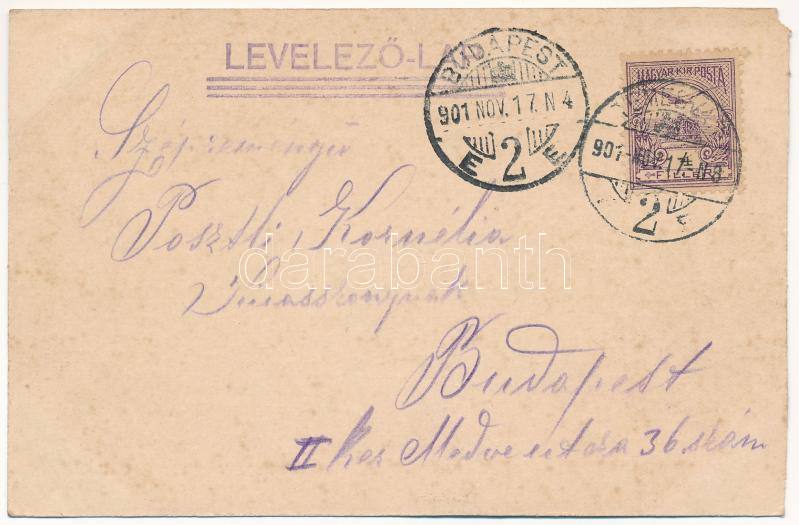 LEVELEZŐ-LA
BUDAPEST
901 NOV. 17. N 4
E 2 E
MAGYAR KIR. POSTA
901 NOV. 17. N 8
2
Szépreményű
Posztli Kornélia
Budapest
II ker Medve utcza 36 szám
darabanth